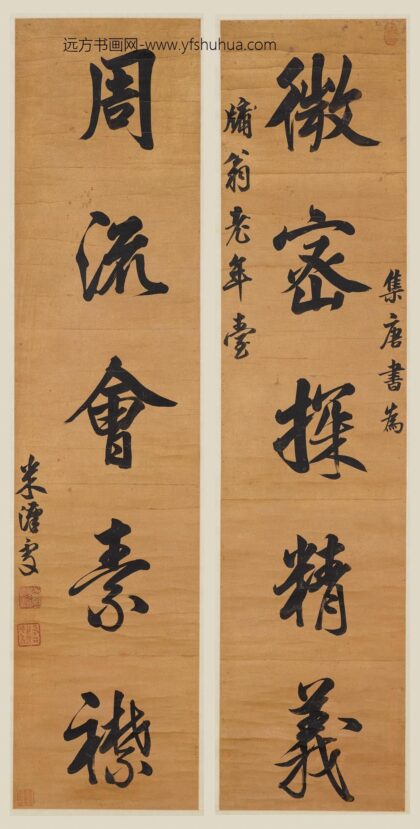 远方书画网-www.yfshuhua.com
微密探精義
集唐書為
牗翁老年臺
周流會素襟
米漢雯